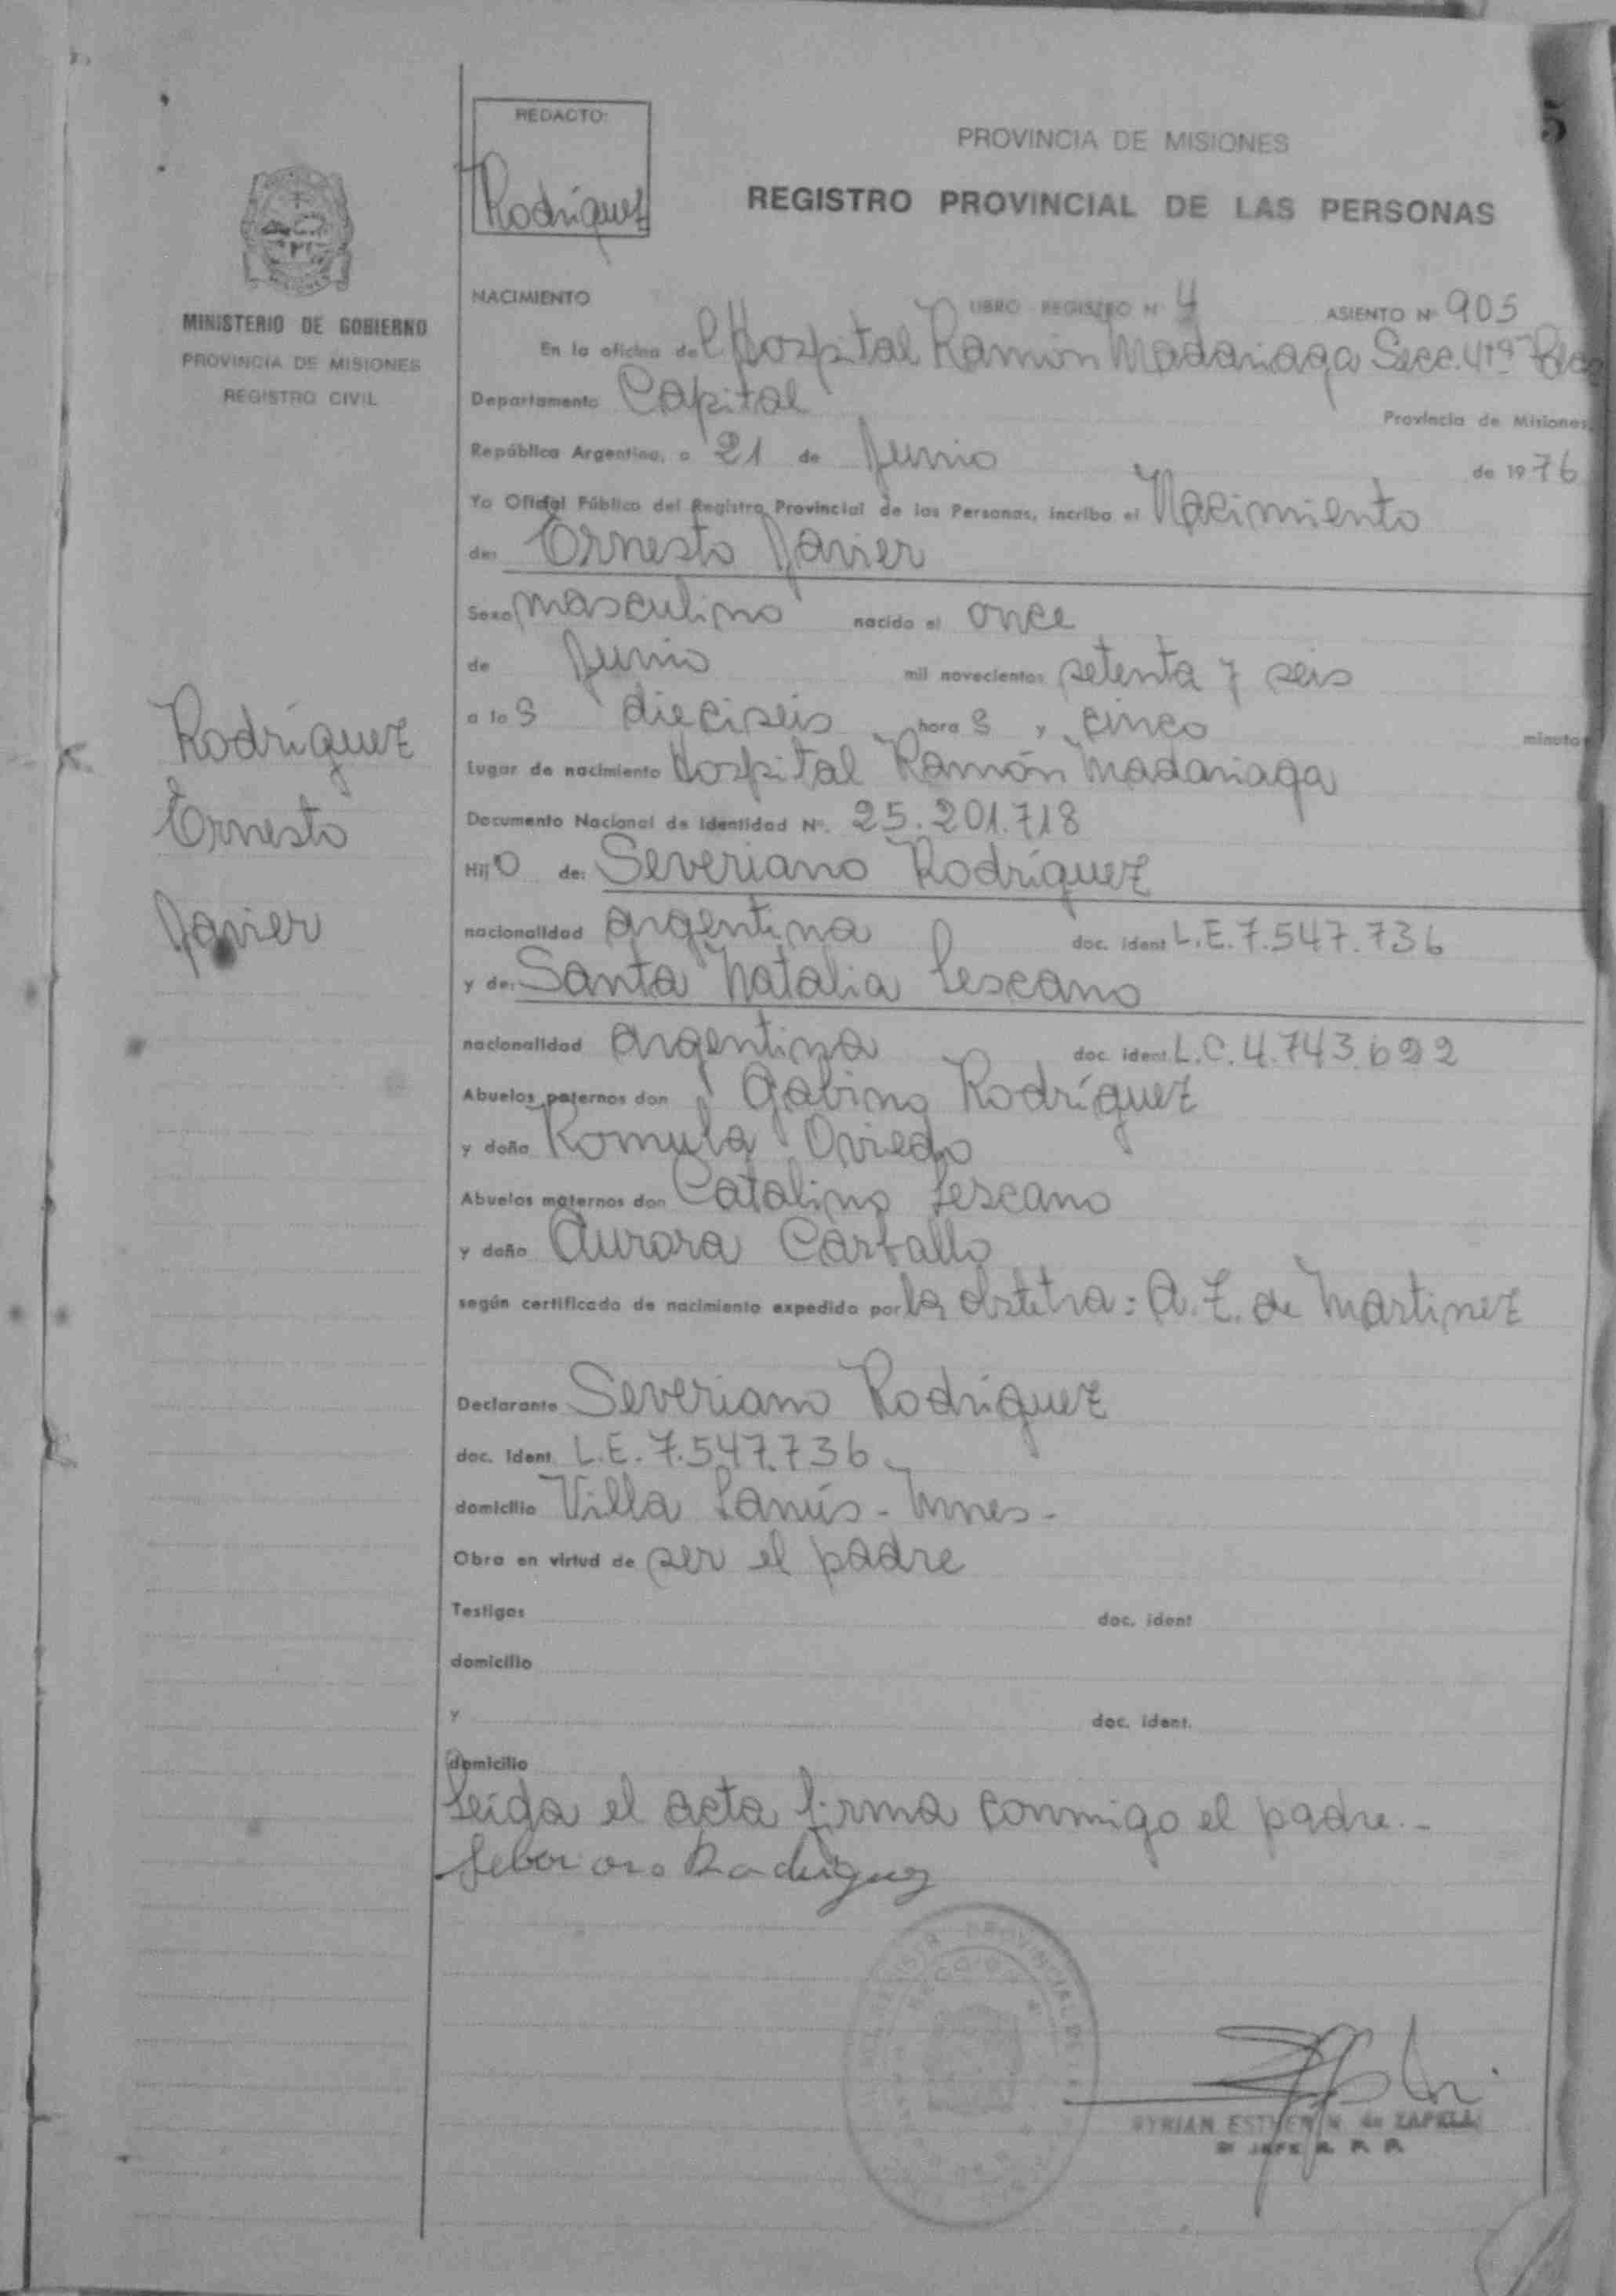 5
REDACTO:
Rodríguez
PROVINCIA DE MISIONES
REGISTRO PROVINCIAL DE LAS PERSONAS
MINISTERIO DE GOBIERNO
PROVINCIA DE MISIONES
REGISTRO CIVIL
NACIMIENTO LIBRO REGISTRO Nº 4 ASIENTO Nº 905
En la oficina del Hospital Ramón Madariaga Secc. 4ta
Departamento Capital Provincia de Misiones,
República Argentina, a 21 de Junio de 1976
Yo Oficial Público del Registro Provincial de las Personas, incribo el Nacimiento
de: Ernesto Javier
Sexo masculino nacido el once
de Junio mil novecientos setenta y seis
a las dieciseis horas y cinco minutos
Lugar de nacimiento Hospital Ramón Madariaga
Documento Nacional de Identidad Nº. 25.201.718
Hijo de: Severiano Rodríguez
nacionalidad argentina doc. ident L.E. 7.547.736
y de: Santa Natalia Lescano
nacionalidad argentina doc. ident. L.C. 4.743.622
Abuelos paternos don Gabino Rodríguez
y doña Romula Oviedo
Abuelos maternos don Catalino Lescano
y doña Aurora Carballo
según certificado de nacimiento expedido por la obstetra: A. Z. de Martinez
Declarante Severiano Rodríguez
doc. ident. L.E. 7.547.736
domicilio Villa Lanús - Mnes -
Obra en virtud de ser el padre
Testigos doc. ident
domicilio
y doc. ident.
domicilio
Leída el acta firma conmigo el padre.-
Seberiano Rodriguez
Rodríguez
Ernesto
Javier
REGISTRO PROVINCIAL DE
ESTHER N. de ZAPELLI
JEFE R. P. P.